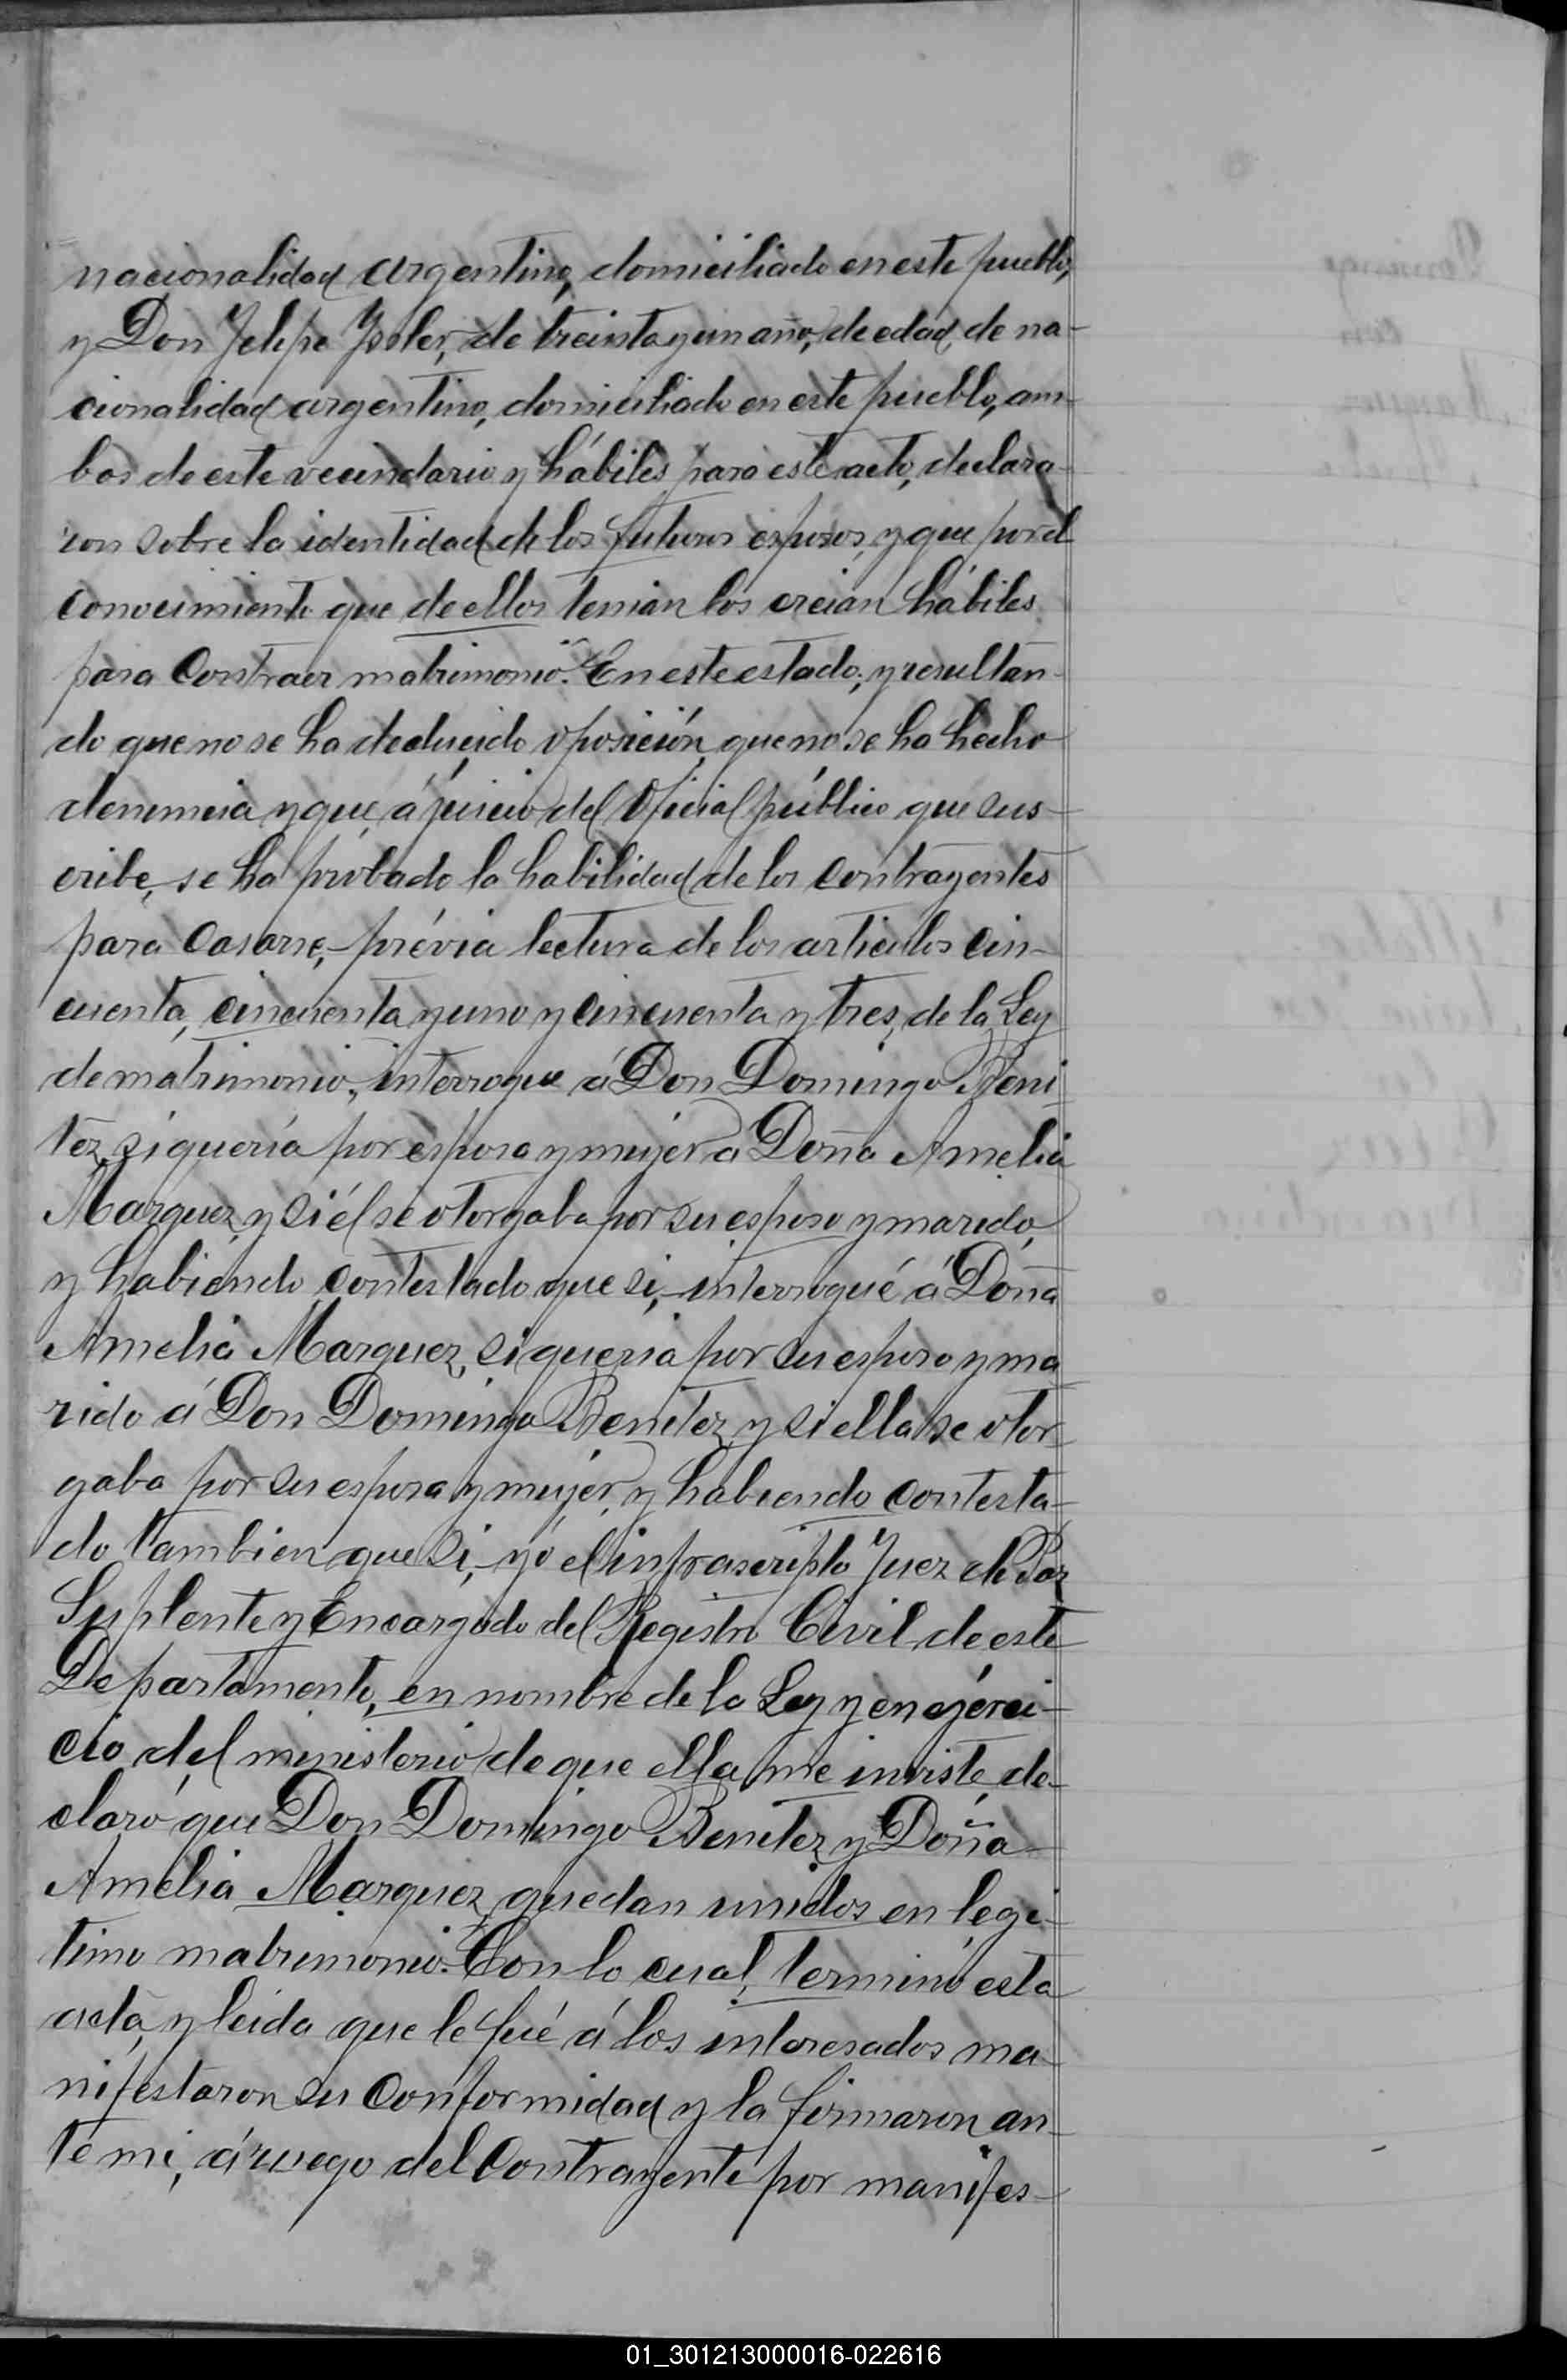 nacionalidad argentino, domiciliado en este pueblo,
y Don Felipe Ysoler, de treinta y un año, de edad, de na-
cionalidad argentino, domiciliado en este pueblo, am-
bos de este vecindario y hábiles para este acto, declara-
ron sobre la identidad de los futuros esposos, y que por el
conocimiento que de ellos tenian los creian hábiles
para contraer matrimonio. En este estado, y resultan-
do que no se ha deducido oposición, que no se ha hecho
denuncia y que, á juicio del Oficial público que sus-
cribe, se ha probado la habilidad de los contrayentes
para casarse, - prévia lectura de los articulos cin-
cuenta, cincuenta y uno y cincuenta y tres, de la Ley
de matrimonio, interrogue á Don Domingo Beni
tez, si quería por esposa y mujer a Doña Amelia
Marquez, y si él se otorgaba por su esposo y marido,
y habiendo contestado que si, - interrogué á Doña
Amelia Marquez, si queria por su esposo y ma
rido á Don Domingo Benitez, y si ella se otor-
gaba por su esposa y mujer, y habiendo contesta-
do tambien que si, - yó el infrascripto Juez de Paz
Suplente y Encargado del Registro Civil de este
Departamento, en nombre de la Ley y en ejérci-
cio del ministerio de que ella me inviste, de-
claró que Don Domingo Benitez y Doña
Amelia Marquez, quedan unidos en legi-
timo matrimonio. Con lo cual, terminó esta
acta, y leida que le fué á los interesados ma-
nifestaron su conformidad y la firmaron an-
te mi, á ruego del contrayente por manifes-
01_301213000016-022616